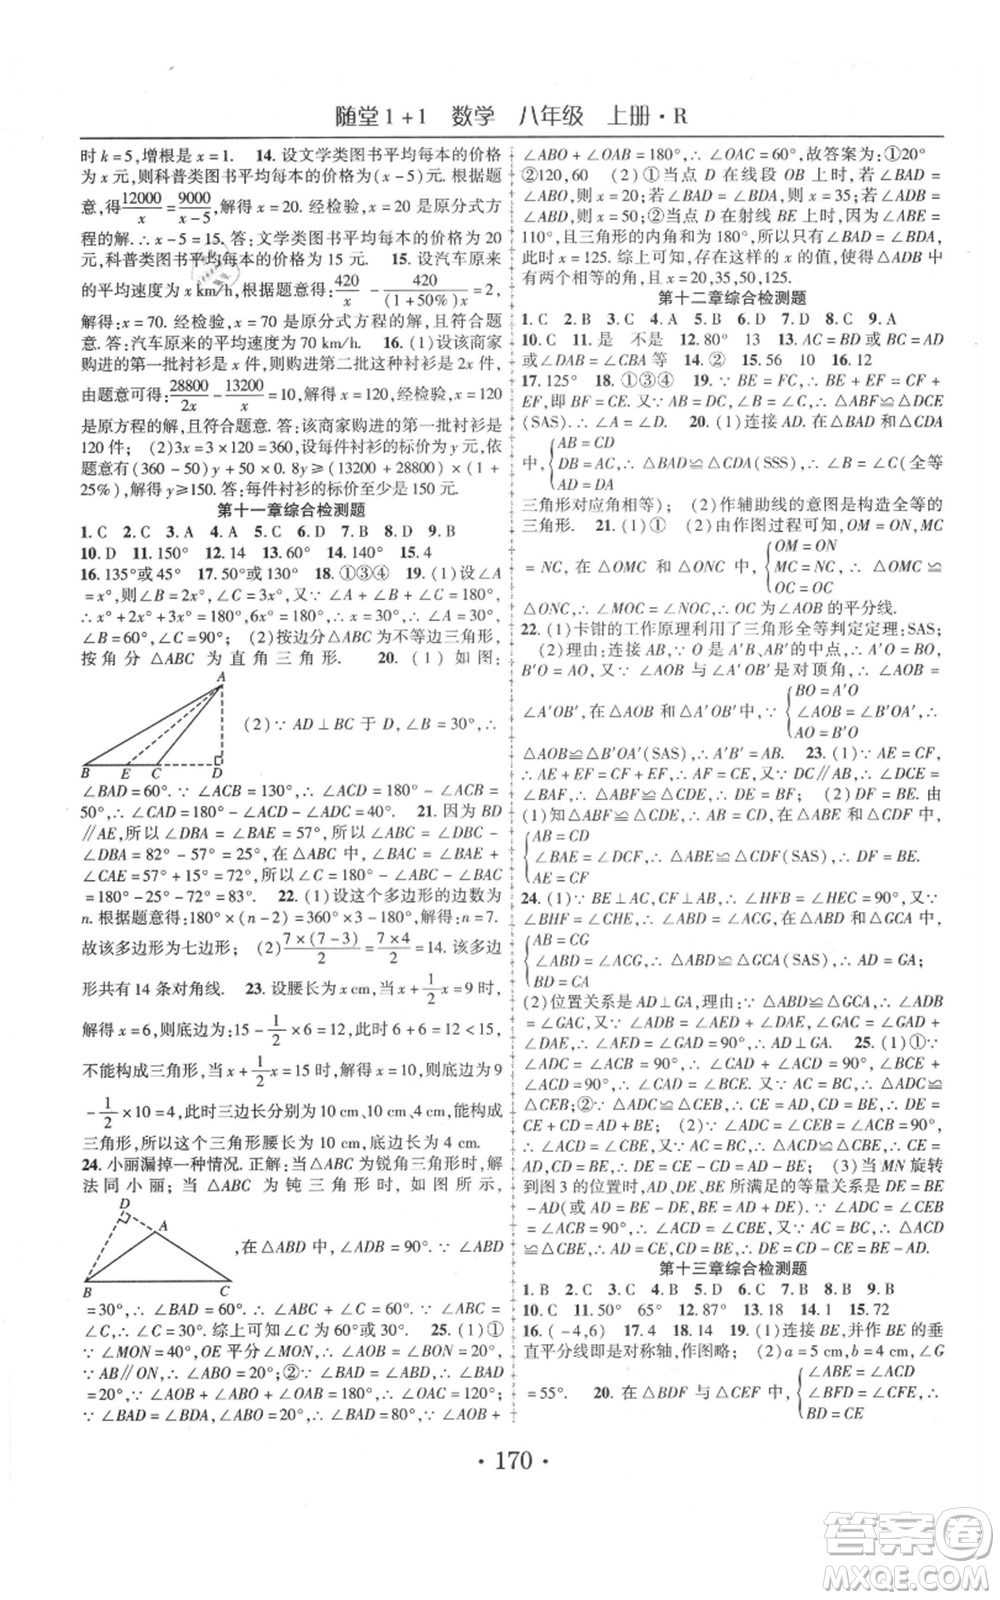 随堂1+1 数学 八年级 上册·R
时k=5,增根是x=1. 14. 设文学类图书平均每本的价格
为x元,则科普类图书平均每本的价格为(x-5)元.根据题
意,得12000/x=9000/(x-5),解得x=20.经检验,x=20是原分式方
程的解.∴x-5=15.答:文学类图书平均每本的价格为20
元,科普类图书平均每本的价格为15元. 15. 设汽车原来
的平均速度为x km/h,根据题意,得420/x-420/((1+50%)x)=2,
解得:x=70.经检验,x=70是原分式方程的解,且符合题
意.答:汽车原来的平均速度为70 km/h. 16. (1)设该商家
购进的第一批衬衫是x件,则购进第二批这种衬衫是2x件,
由题意可得:28800/2x-13200/x=10,解得x=120,经检验x=120
是原方程的解,且符合题意.答:该商家购进的第一批衬衫是
120件;(2)3x=3×120=360,设每件衬衫的标价为y元,依
题意有(360-50)y+50×0.8y≥(13200+28800)×(1+
25%),解得y≥150.答:每件衬衫的标价至少是150元.
第十一章综合检测题
1. C 2. C 3. A 4. C 5. C 6. D 7. B 8. D 9. B
10. D 11. 150° 12. 14 13. 60° 14. 140° 15. 4
16. 135°或45° 17. 120° 18. ①③④ 19. (1)设∠A
=x°,则∠B=2x°,∠C=3x°,又∵∠A+∠B+∠C=180°,
∴x°+2x°+3x°=180°,6x°=180°,x°=30°,∴∠A=30°,
∠B=60°,∠C=90°;(2)按边分△ABC为不等边三角形,
按角分△ABC为直角三角形. 20. (1)如图:
A
B E C D
(2)∵AD⊥BC于D,∠B=30°,∴
∠BAD=60°.∵∠ACB=130°,∴∠ACD=180°-∠ACB=
50°,∴∠CAD=180°-∠ACD-∠ADC=40°. 21. 因为BD
∥AE,所以∠DBA=∠BAE=57°,所以∠ABC=∠DBC-
∠DBA=82°-57°=25°,在△ABC中,∠BAC=∠BAE+
∠CAE=57°+15°=72°,所以∠C=180°-∠ABC-∠BAC
=180°-25°-72°=83°. 22. (1)设这个多边形的边数为
n.根据题意得:180°×(n-2)=360°×3-180°,解得:n=7.
故该多边形为七边形;(2)7×(7-3)/2=7×4/2=14.该多边
形共有14条对角线. 23. 设腰长为x cm,当x+1/2x=9时,
解得x=6,则底边为:15-1/2×6=12,此时6+6=12<15,
不能构成三角形,当x+1/2x=15时,x=10,此时底边为9
-1/2×10=4,此时三边长分别为10 cm、10 cm、4 cm,能构成
三角形,所以这个三角形腰长为10 cm,底边长为4 cm.
24. 小丽漏掉一种情况.正解:当△ABC为锐角三角形时,解
法同小丽;当△ABC为钝三角形时,如图所示,
D A
B C
,在△ABD中,∠ABD=90°.∵∠ABD
=30°,∴∠BAD=60°.∴∠BAC=120°.∵∠BAD=∠ABC+
∠C,∴∠C=30°.综上可知,∠C=30°或60°. 25. (1)①
∵∠MON=40°,OE平分∠MON,∴∠AOB=∠BON=20°,∵
AB∥ON,∴∠ABO=20°;②∵∠BAD=∠ABD,∴∠BAD=20°,
∵∠AOB+∠ABO+∠OAB=180°,∴∠OAC=120°,
∵∠BAD=∠BDA,∠ABO=20°,∴∠BAD=80°,∵∠AOB+
∠ABO+∠OAB=180°,∴∠OAC=60°,故答案为:①20°
②120,60 (2)①当点D在线段OB上时,若∠BAD=
∠ABD,则x=20;若∠BAD=∠BDA,则x=35;若∠ADB=
∠ABD,则x=50;②当点D在射线BE上时,因为∠ABE=
110°,且三角形的内角和为180°,所以只有∠BAD=∠BDA,
此时x=125.综上可知,存在这样的x的值,使得△ADB中
有两个相等的角,且x=20,35,50,125.
第十二章综合检测题
1. C 2. B 3. B 4. C 5. C 6. D 7. B 8. C 9. A
10. C 11. 是 不是 12. 80° 13 13. AC=BD或AD
或∠DAB=∠CBA等 14. ② 15. 56 10 16. 12
17. 125° 18. ①③④ 19. ∵BE=FC,∴BE+EF=CF+
EF,即BF=CE.又∵AB=DC,∠B=∠C,∴△ABF≌△DCE
(SAS).∴∠A=∠D. 20. (1)连接AD.在△BDA和△CDA
中,{AB=CD
DB=AC,∴△ABD≌△CDA(SSS),∴∠B=∠C(全等
DA=AD
三角形对应角相等);(2)作辅助线的意图是构造全等的
三角形. 21. (1)① (2)由作图过程可知,OM=ON,MC
=NC,在△OMC和△ONC中,{OM=ON
MC=NC,∴△OMC≌
OC=OC
△ONC,∴∠MOC=∠NOC,∴OC为∠AOB的平分线.
22. (1)卡钳的工作原理利用了三角形全等判定定理:SAS;
(2)理由:连接AB,∵O是A'B、AB'的中点,∴A'O=BO,
B'O=AO,又∵∠AOB与∠A'OB'是对顶角,∴∠AOB=
∠A'OB',在△AOB和△A'OB'中,∵{BO=A'O
∠AOB=∠B'OA',∴
AO=B'O
△AOB≌△B'OA'(SAS),∴A'B'=AB. 23. (1)∵AE=CF,
∴AE+EF=CF+EF,∴AF=CE,又∵DC∥AB,∴∠DCE=
∠BAF,∵AB=CD,∴△ABF≌△CDE,∴BF=DE.(2)由
(1)知△ABF≌△CDE,∴AB=CD,在△ABE和△CDF中,
{AB=CD
∠BAE=∠DCF,∴△ABE≌△CDF(SAS),∴DF=BE.
AE=CF
24. (1)∵BE⊥AC,CF⊥AB,∴∠HFB=∠HEC=90°,又∵
∠BHF=∠CHE,∴∠ABD=∠ACG,在△ABD和△GCA中,
{AB=CG
∠ABD=∠GCA,∴△ABD≌△GCA(SAS),∴AD=GA;
BD=CA
(2)位置关系是AD⊥GA,理由:∵△ABD≌△GCA,∴∠ADB
=∠GAC,又∵∠ADB=∠AED+∠DAE,∠GAC=∠GAD+
∠DAE,∴∠AED=∠GAD=90°,∴AD⊥GA. 25. (1)①∵
∠ADC=∠ACB=90°,∴∠CAD+∠ACD=90°,∠BCE+
∠ACD=90°,∴∠CAD=∠BCE.∵AC=BC,∴△ADC≌
△CEB;②∵△ADC≌△CEB,∴CE=AD,CD=BE,∴DE=
CE+CD=AD+BE.(2)∵∠ADC=∠CEB=∠ACB=90°,
∴∠ACD=∠CBE,又∵AC=BC,∴△ACD≌△CBE,∴CE=
AD,CD=BE,∴DE=CE-CD=AD-BE;(3)当MN旋转
到图3的位置时,AD、DE、BE所满足的等量关系是DE=BE
-AD(或AD=BE-DE,BE=AD+DE等).∵∠ADC=∠CEB
=∠ACB=90°,∴∠ACD=∠CBE,又∵AC=BC,∴△ACD
≌△CBE,∴AD=CE,CD=BE,∴DE=CD-CE=BE-AD.
第十三章综合检测题
1. B 2. C 3. C 4. A 5. B 6. C 7. A 8. A 9. B
10. C 11. 50° 65° 12. 87° 13. 18 14. 1 15. 72
16. (-4,6) 17. 4 18. 14 19. (1)连接BE,并作BE的垂
直平分线即是对称轴,作图略;(2)a=5 cm,b=4 cm,∠G
=55°. 20. 在△BDF与△CEF中,∵{∠ABE=∠ACD
∠BFD=∠CFE,∴
BD=CE
·170·
答案卷
MXQE.COM